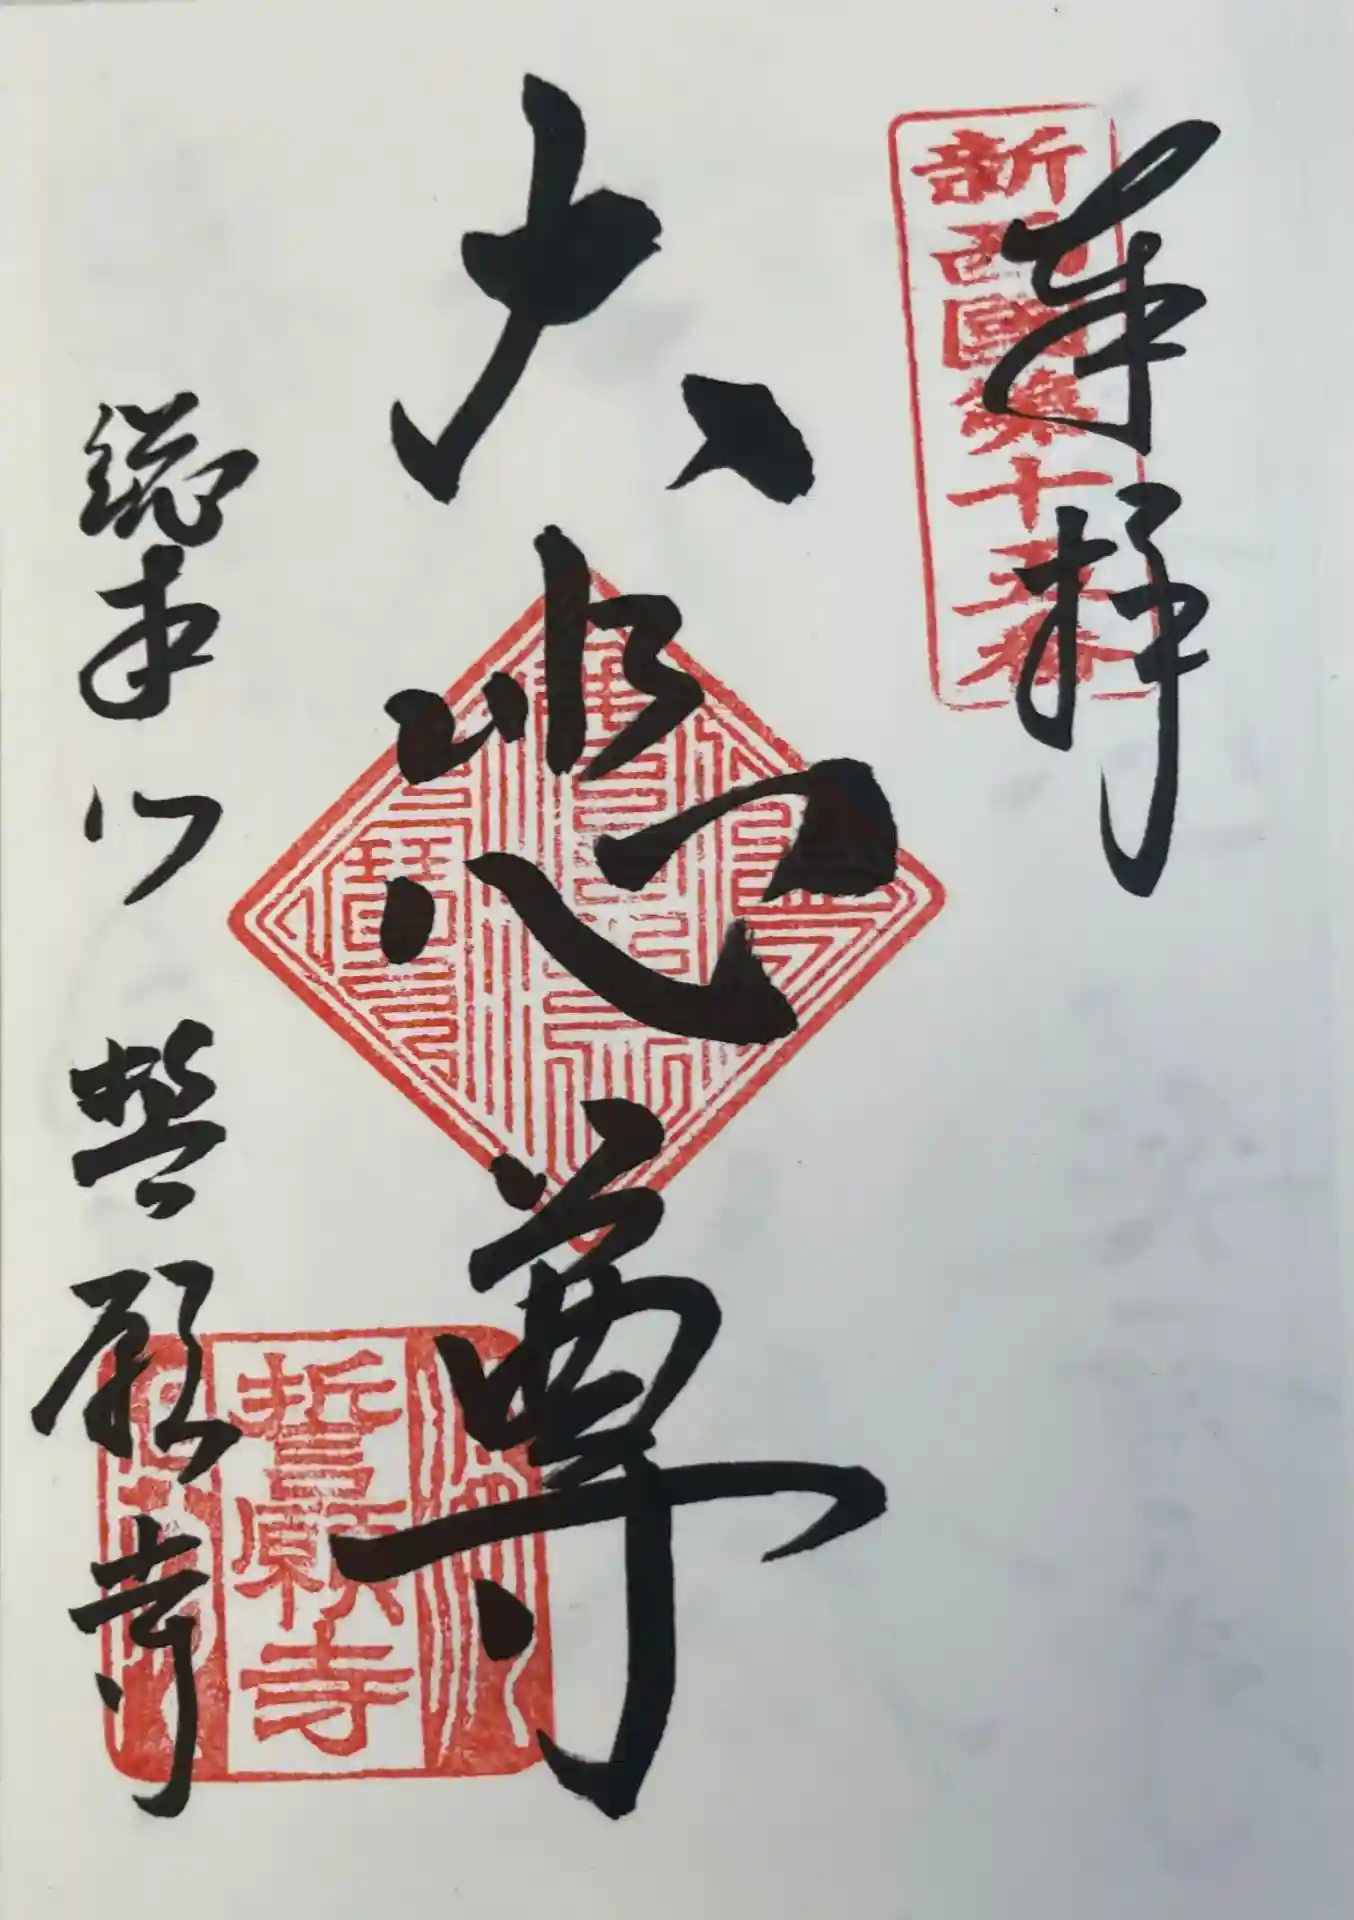 奉拝
新西國第十五番
大悲尊
總本山 誓願寺
誓願寺